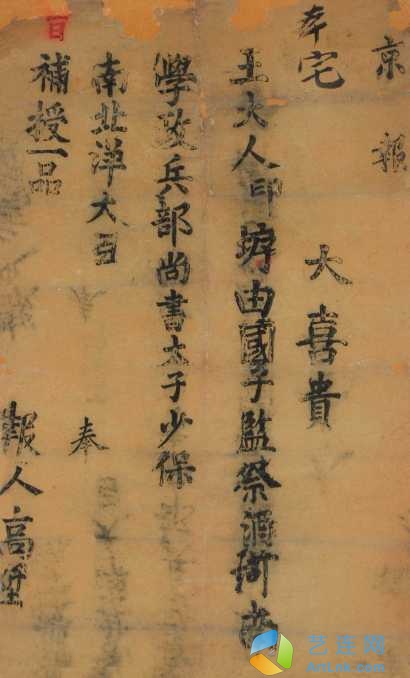 京報
大喜貴
本宅
王大人印 由國子監祭酒街
學政兵部尚書太子少保
南北洋大臣
奉
補授一品
報人高陞
百
艺连网